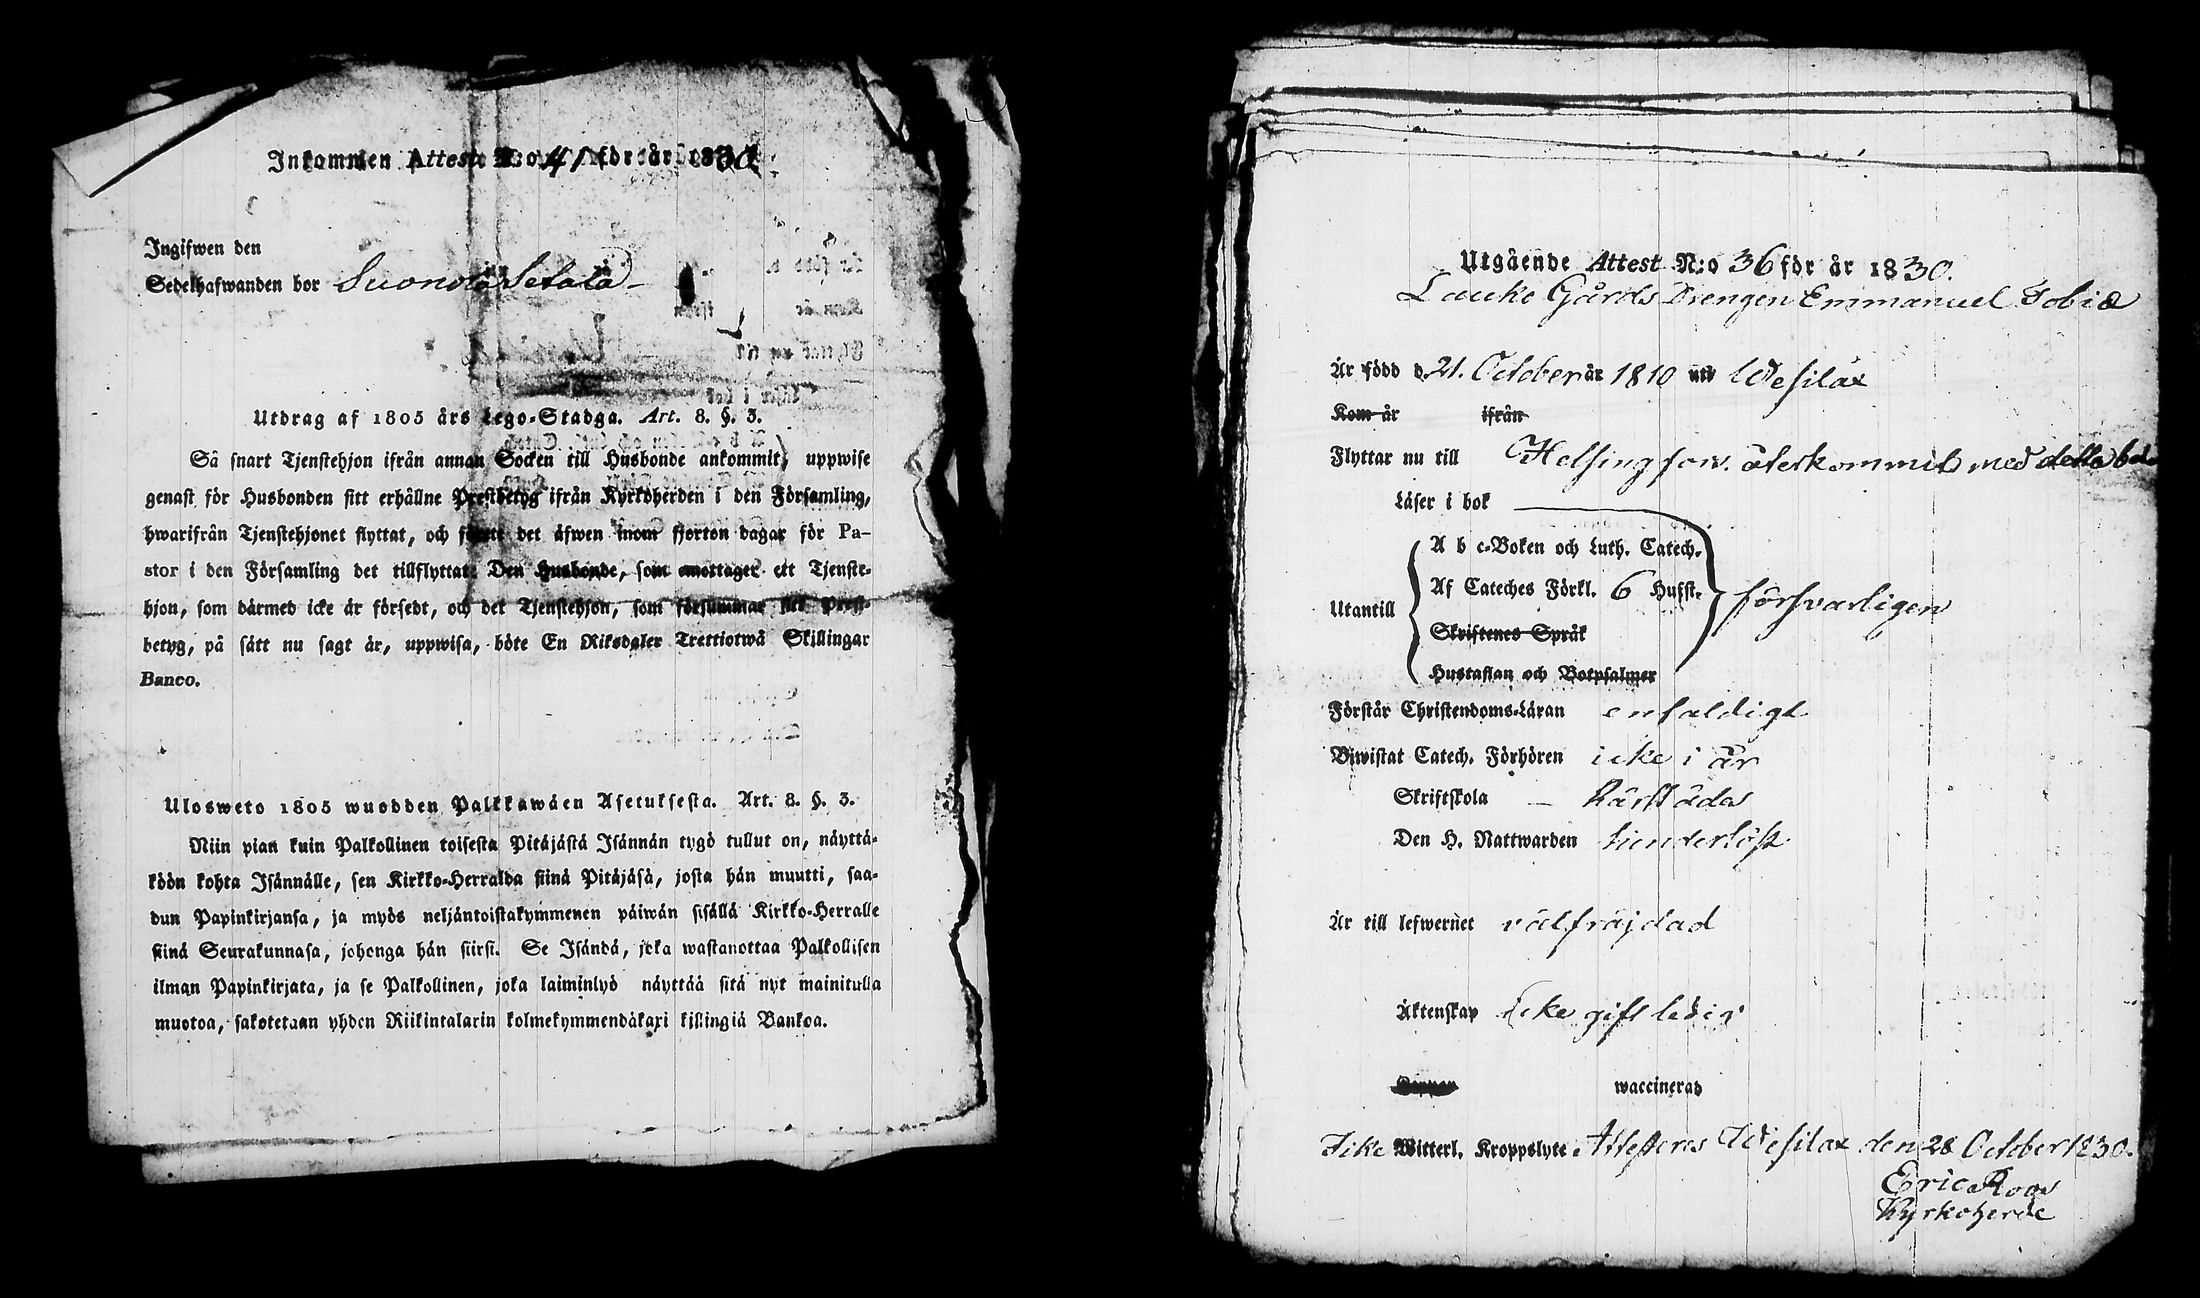 Inkommen Attest N:o 41 för år 1830.
Ingifwen den
Sedelhafwanden bor Suonola Setala
Utdrag af 1805 års Lego-Stadga. Art. 8. §. 3.
Så snart Tjenstehjon ifrån annan Socken till Husbonde ankommit, uppwise
genast för Husbonden sitt erhållne Prestbetyg ifrån Kyrkoherden i den Församling,
hwarifrån Tjenstehjonet flyttat, och förete det äfwen inom fjorton dagar för Pa-
stor i den Församling det tillflyttat. Den Husbonde, som emottager ett Tjenste-
hjon, som dermed icke är försedt, och det Tjenstehjon, som försummar sitt Prest-
betyg, på sätt nu sagt är, uppwisa, böte En Riksdaler Trettiotwå Skillingar
Banco.
Ulosweto 1805 wuodden Palkkawäen Asetuksesta. Art. 8. §. 3.
Niin pian kuin Palkollinen toisesta Pitäjästä Isännän tygö tullut on, näyttä-
köön kohta Isännälle, sen Kirkko-Herralda siinä Pitäjäsä, josta hän muutti, saa-
dun Papinkirjansa, ja myös neljäntoistakymmenen päiwän sisällä Kirkko-Herralle
siinä Seurakunnasa, johonga hän siirsi. Se Isändä, joka wastanottaa Palkollisen
ilman Papinkirjata, ja se Palkollinen, joka laiminlyö näyttää sitä nyt mainitulla
muotoa, sakotetaan yhden Riikintalarin kolmekymmendäkaxi killingiä Bankoa.
Utgående Attest N:o 36 för år 1830.
Lauko Gårds Drengen Emmanuel Tobia
Är född d. 21. October år 1810 uti Wesilax
Kom år ifrån
Flyttar nu till Helsingfors. återkommit med detta bet
Läser i bok
A b c-Boken och Luth. Catech.
Af Cateches Förkl. 6 Hufst.
Utantill försvarligen
Skriftenes Språk
Hustaflan och Botpsalmer
Förstår Christendoms-Läran enfaldigt
Biwistat Catech. Förhören icke i år
Skriftskola — härstädes
Den H. Nattwarden hinderlöst
Är till lefwernet välfräjdad
Äktenskap icke gift ledig
waccinerad
Icke Witterl. Kroppslyte Attesteres Wesilax den 28 October 1830.
Eric Roos
Kyrkoherde